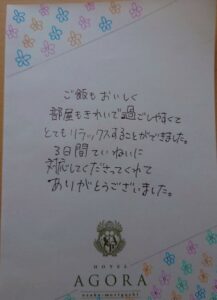 ご飯もおいしく
部屋もきれいで過ごしやすくて
とてもリラックスすることができました。
3日間ていねいに
対応してくださってくれて
ありがとうございました。
HOTEL
AGORA
osaka-moriguchi